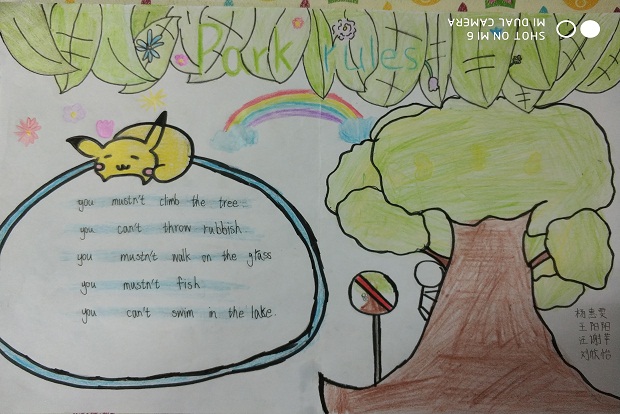 SHOT ON MI 6
MI DUAL CAMERA
Park rules
you mustn't climb the tree.
you can't throw rubbish
you mustn't walk on the grass
you mustn't fish
you can't swim in the lake.
王阳阳
刘欣怡